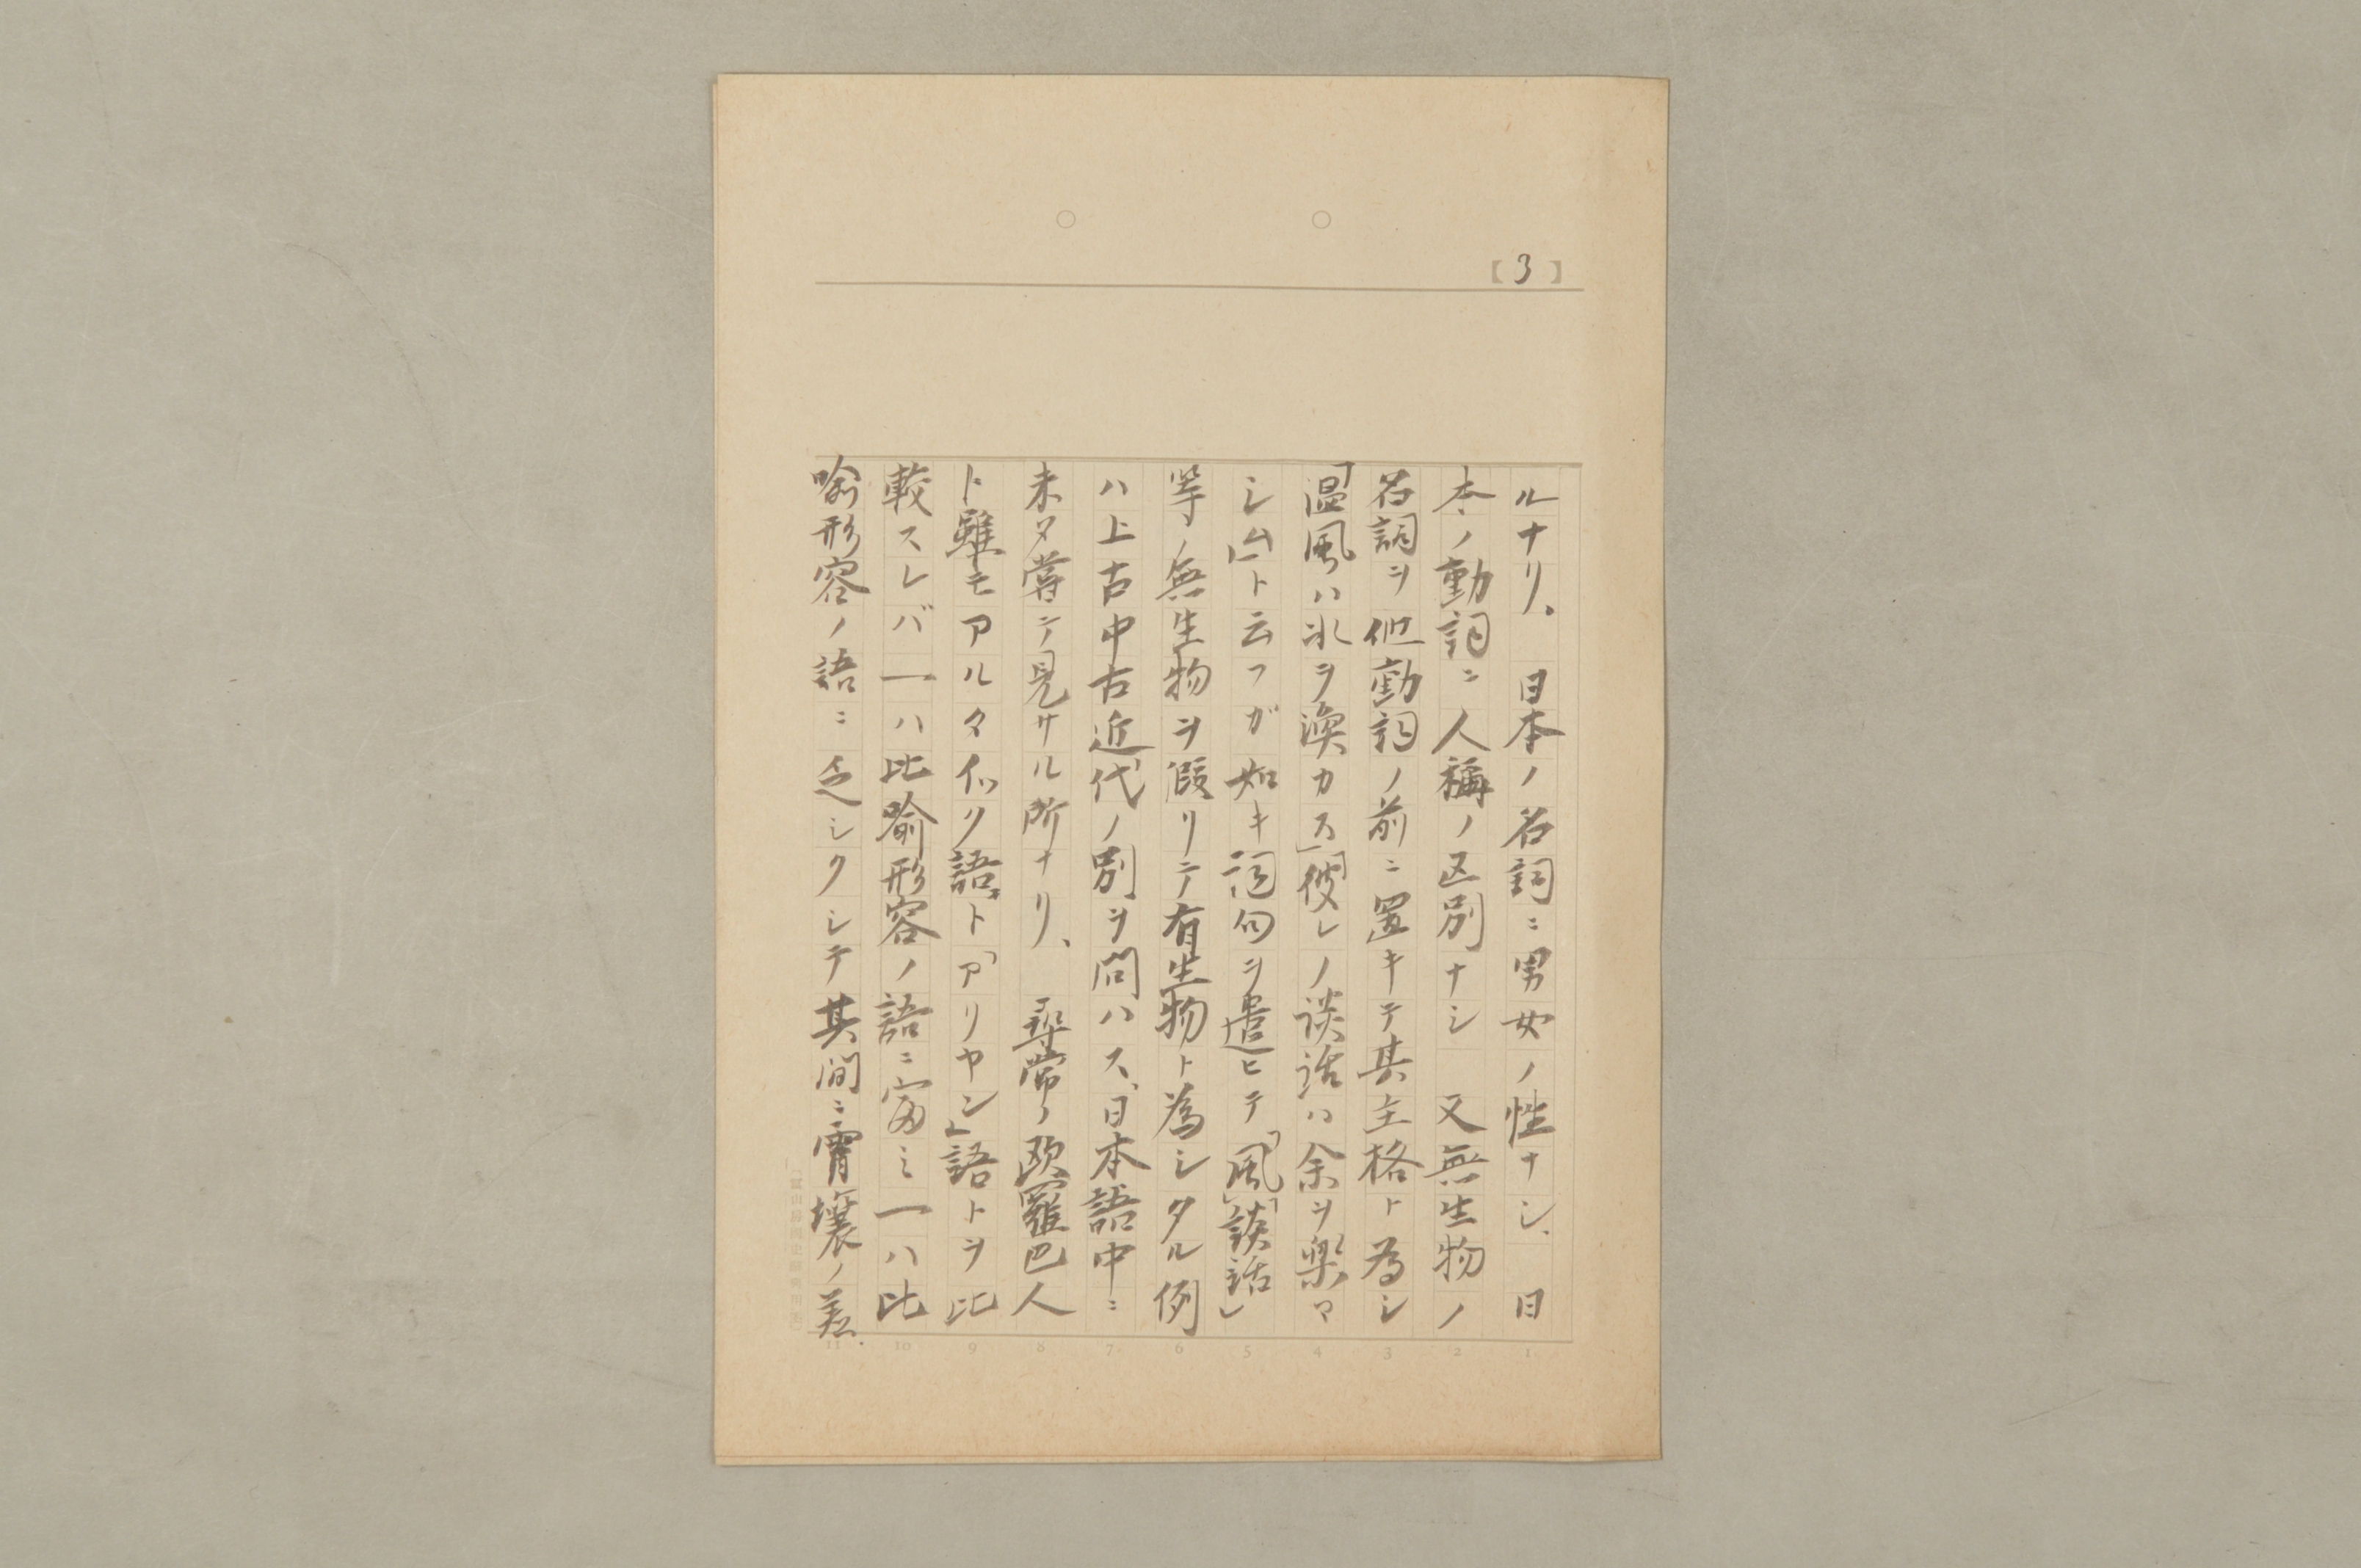 【3】
ルナリ。　日本ノ名詞ニ男女ノ性ナシ、　日
本ノ動詞ニ人稱ノ区別ナシ　又無生物ノ
名詞ヲ他動詞ノ前ニ置キテ其主格ト為シ
「温風ハ氷ヲ渙カス」「彼レノ談話ハ余ヲ楽マ
シム」ト云フガ如キ詞句ヲ遣ヒテ「風」「談話」
等ノ無生物ヲ假リテ有生物ト為シタル例
ハ上古中古近代ノ別ヲ問ハス、日本語中ニ
未タ嘗テ見サル所ナリ、　尋常ノ欧羅巴人
ト雖モアルタイック語ト「アリヤン」語トヲ比
較スレバ一ハ比喩形容ノ語ニ富ミ一ハ比
喩形容ノ語ニ乏シクシテ其間ニ霄壤ノ差
1 2 3 4 5 6 7 8 9 10 11